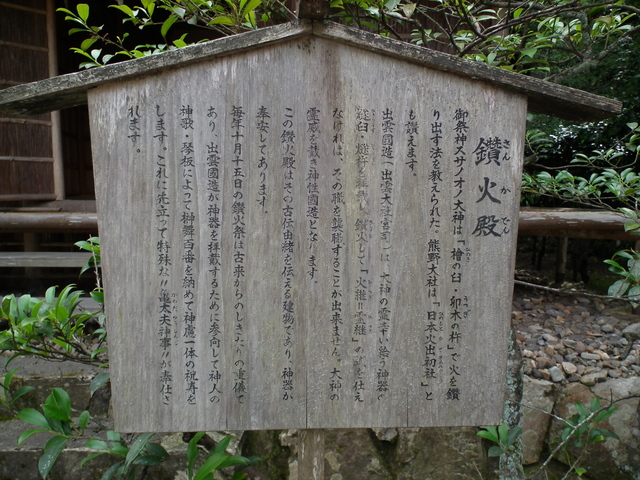 鑽火殿
さんかでん
御祭神スサノオノ大神は「檜の臼・卯木の杵」で火を鑽
り出す法を教えられた。熊野大社は「日本火出初社」と
も讃えます。
出雲國造(出雲大社宮司)は、大神の霊幸い給う神器の
燧臼・燧杵を 鑽火して「火継・霊継」の を仕え
なければ、その職を襲職することが出来ません。大神の
霊威を戴き神性國造となります。
この鑽火殿はその古伝由緒を伝える建物であり、神器が
奉安してあります。
毎年十月十五日の鑽火祭は古来からのしきたりの重儀で
あり、出雲國造が神器を拝戴するために参向して神人の
神歌・琴板によって榊舞百番を納めて神慮一体の祝寿を
します。これに先立って特殊な〃亀太夫神事〃が奉仕さ
れます。